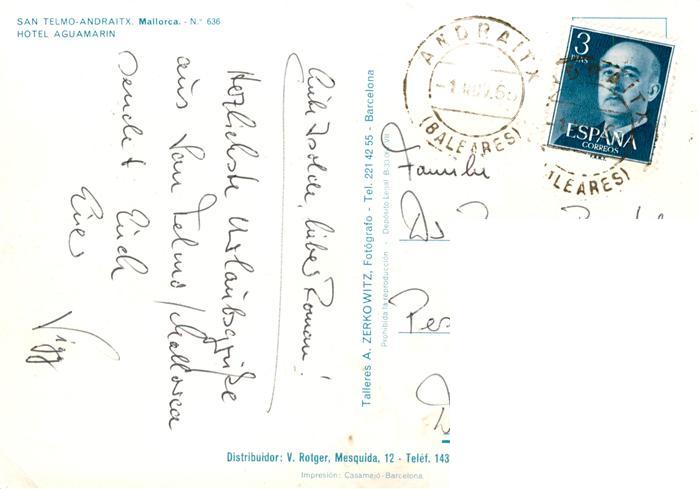 SAN TELMO-ANDRAITX. Mallorca. - N.° 636
HOTEL AGUAMARIN
Liebe Isolde, lieber Roman!
Herzlichste Urlaubsgrüße
aus San Telmo/Mallorca
sendet Euch
Euer
Talleres A. ZERKOWITZ, Fotógrafo - Tel. 221 42 55 - Barcelona
Prohibida la reproducción - Depósito Legal B.
ANDRAITX
(BALEARES)
3
PTAS
ESPAÑA
CORREOS
ANDRAITX
(BALEARES)
Familie
Distribuidor: V. Rotger, Mesquida, 12 - Teléf. 143
Impresión: Casamajó-Barcelona